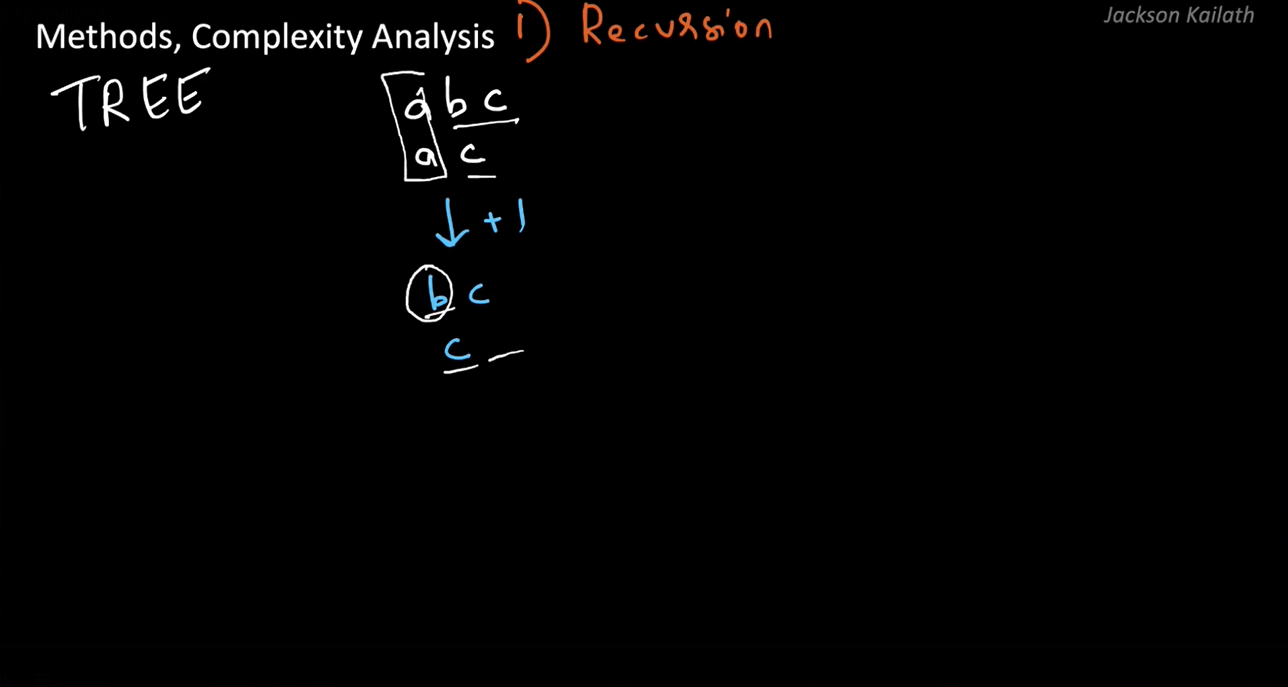 Methods, Complexity Analysis 1) Recursion
Jackson Kailath
TREE
a b c
a c
↓ + 1
b c
c _